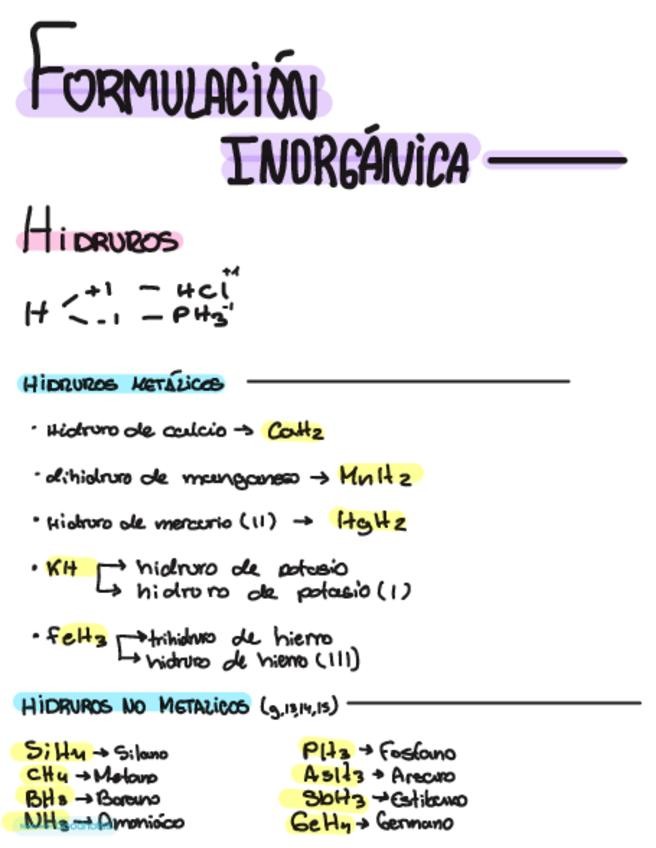 FORMULACIÓN
INORGÁNICA
HIDRUROS
H +1 — HCl+1
-1 — PH3-1
HIDRUROS METÁLICOS
· Hidruro de calcio → CaH2
· dihidruro de manganeso → MnH2
· Hidruro de mercurio (II) → HgH2
· KH → hidruro de potasio
→ hidruro de potasio (I)
· FeH3 → trihidruro de hierro
→ hidruro de hierro (III)
HIDRUROS NO METALICOS (g.13,14,15)
SiH4 → Silano
CH4 → Metano
BH3 → Borano
NH3 → Amoniáco
PH3 → Fosfano
AsH3 → Arsano
SbH3 → Estibano
GeH4 → Germano